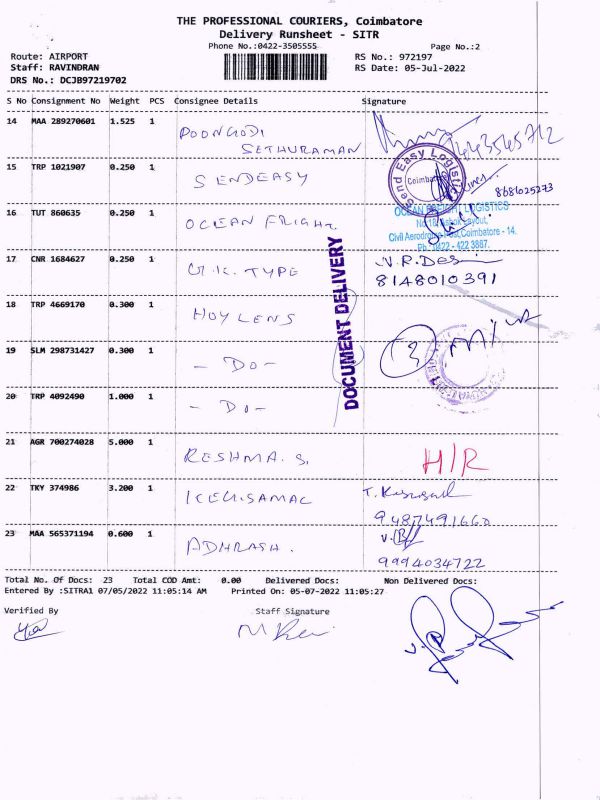 THE PROFESSIONAL COURIERS, Coimbatore
Delivery Runsheet - SITR
Phone No.:0422-3505555
Page No.:2
Route: AIRPORT
RS No.: 972197
Staff: RAVINDRAN
RS Date: 05-Jul-2022
DRS No.: DCJB97219702
S No Consignment No Weight PCS Consignee Details Signature
14 MAA 289270601 1.525 1 POONGODI
SETHURAMAN
15 TRP 1021907 0.250 1 SENDEASY
Send Easy Logistics
Coimbatore
8681025273
16 TUT 860635 0.250 1 OCEAN FRIGHT.
OCEAN FREIGHT LOGISTICS
Civil Aerodrome Post, Coimbatore - 14.
Ph : 0422 - 422 3887.
17 CNR 1684627 0.250 1 TYPE
8148010391
DOCUMENT DELIVERY
18 TRP 4669170 0.300 1 HOYLENS
19 SLM 298731427 0.300 1 - DO -
3
20 TRP 4092490 1.000 1 - DO -
21 AGR 700274028 5.000 1 RESHMA. S.
H/R
22 TKY 374986 3.200 1
9487491660
23 MAA 565371194 0.600 1 ADHRASH.
9994034722
Total No. Of Docs: 23 Total COD Amt: 0.00 Delivered Docs: Non Delivered Docs:
Entered By :SITRA1 07/05/2022 11:05:14 AM Printed On: 05-07-2022 11:05:27
Verified By Staff Signature